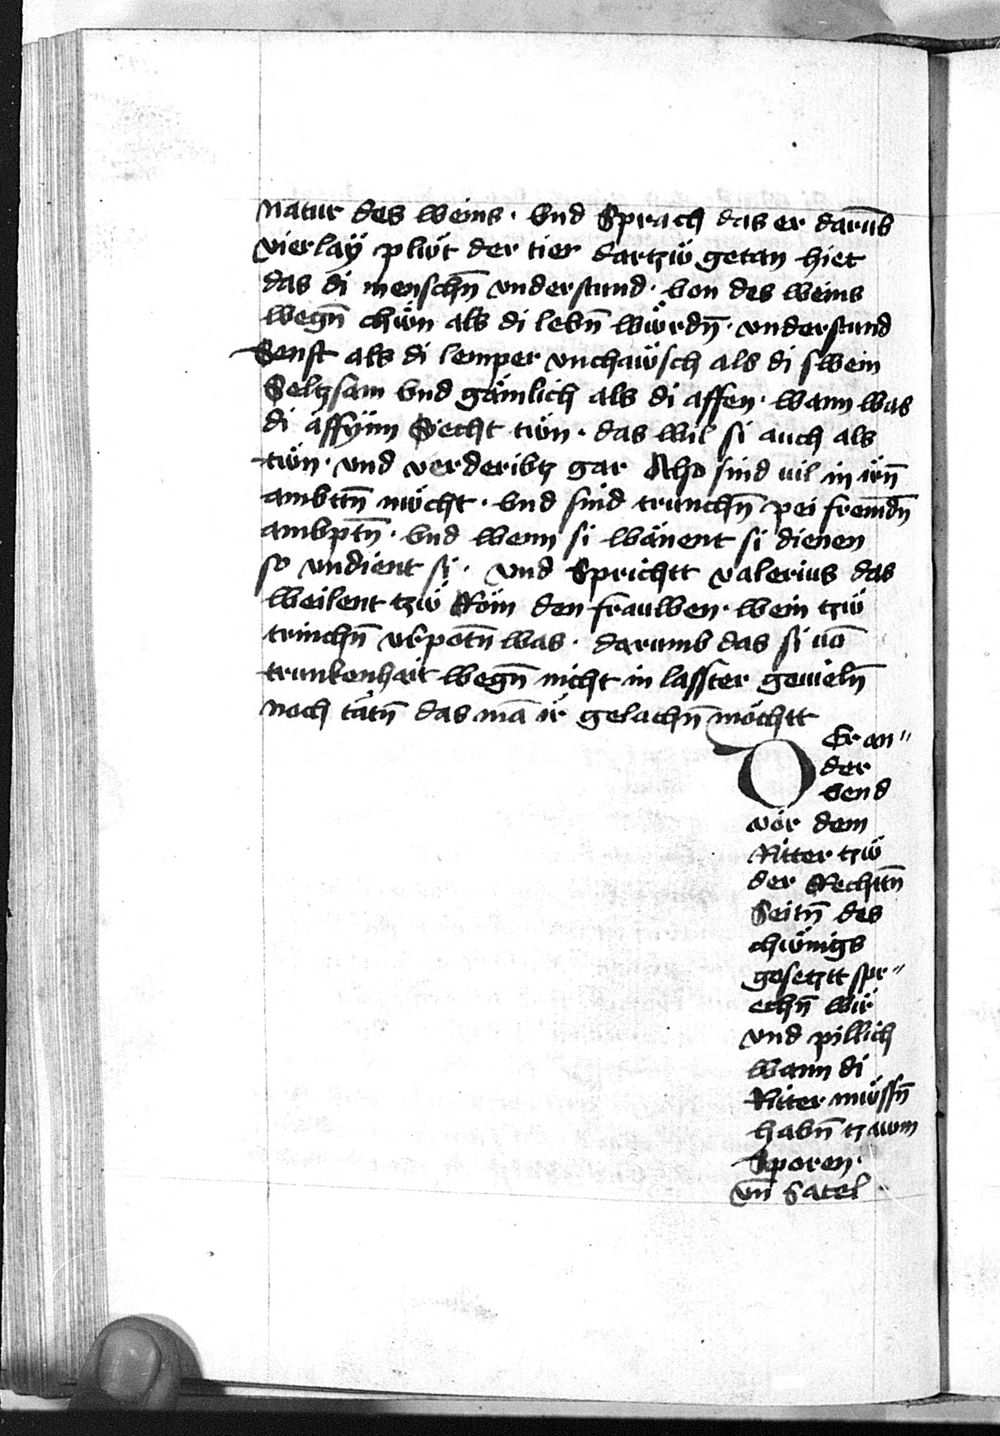 natur des weins · vnd Sprach das er darūb
vierlaÿ plẅt der tier dartzẅ getan hiet
das di menschn̄ vnderstund · von des weins
wegn̄ chẅn als di lebn̄ wẅrdn̄ · vnderstund
Senft als di lemper vnchawsch als di swein
Seltzsam vnd gämlich als di affen · wann was
di affÿnn Siecht twn · das wil si auch als
twn · vnd verderibtz gar Also sind vil in irn̄
ambttn̄ nücht · vnd sind trunchn̄ pei fremdn̄
ambptn̄ · vnd wenn si wänent si dienen
so vndient si · vnd Sprichtt valerius das
weilent tzẅ Röm den frauwen · wein tzẅ
trinchn̄ vrpotn̄ was · darumb das si uō
trunkenhait wegn̄ nicht in lasster geuieln̄
noch tätn̄ das mā ir gelachn̄ möchtt
DEr an"
der
vend
vor dem
Ritter tzẅ
der Rechttn̄
Seitn̄ des
chẅnigs
gesetztt spr"
echn̄ wir
vnd pillich
wann di
Ritter mẅssn̄
habn̄ tzawm
Sporen ·
vn̄ Satel